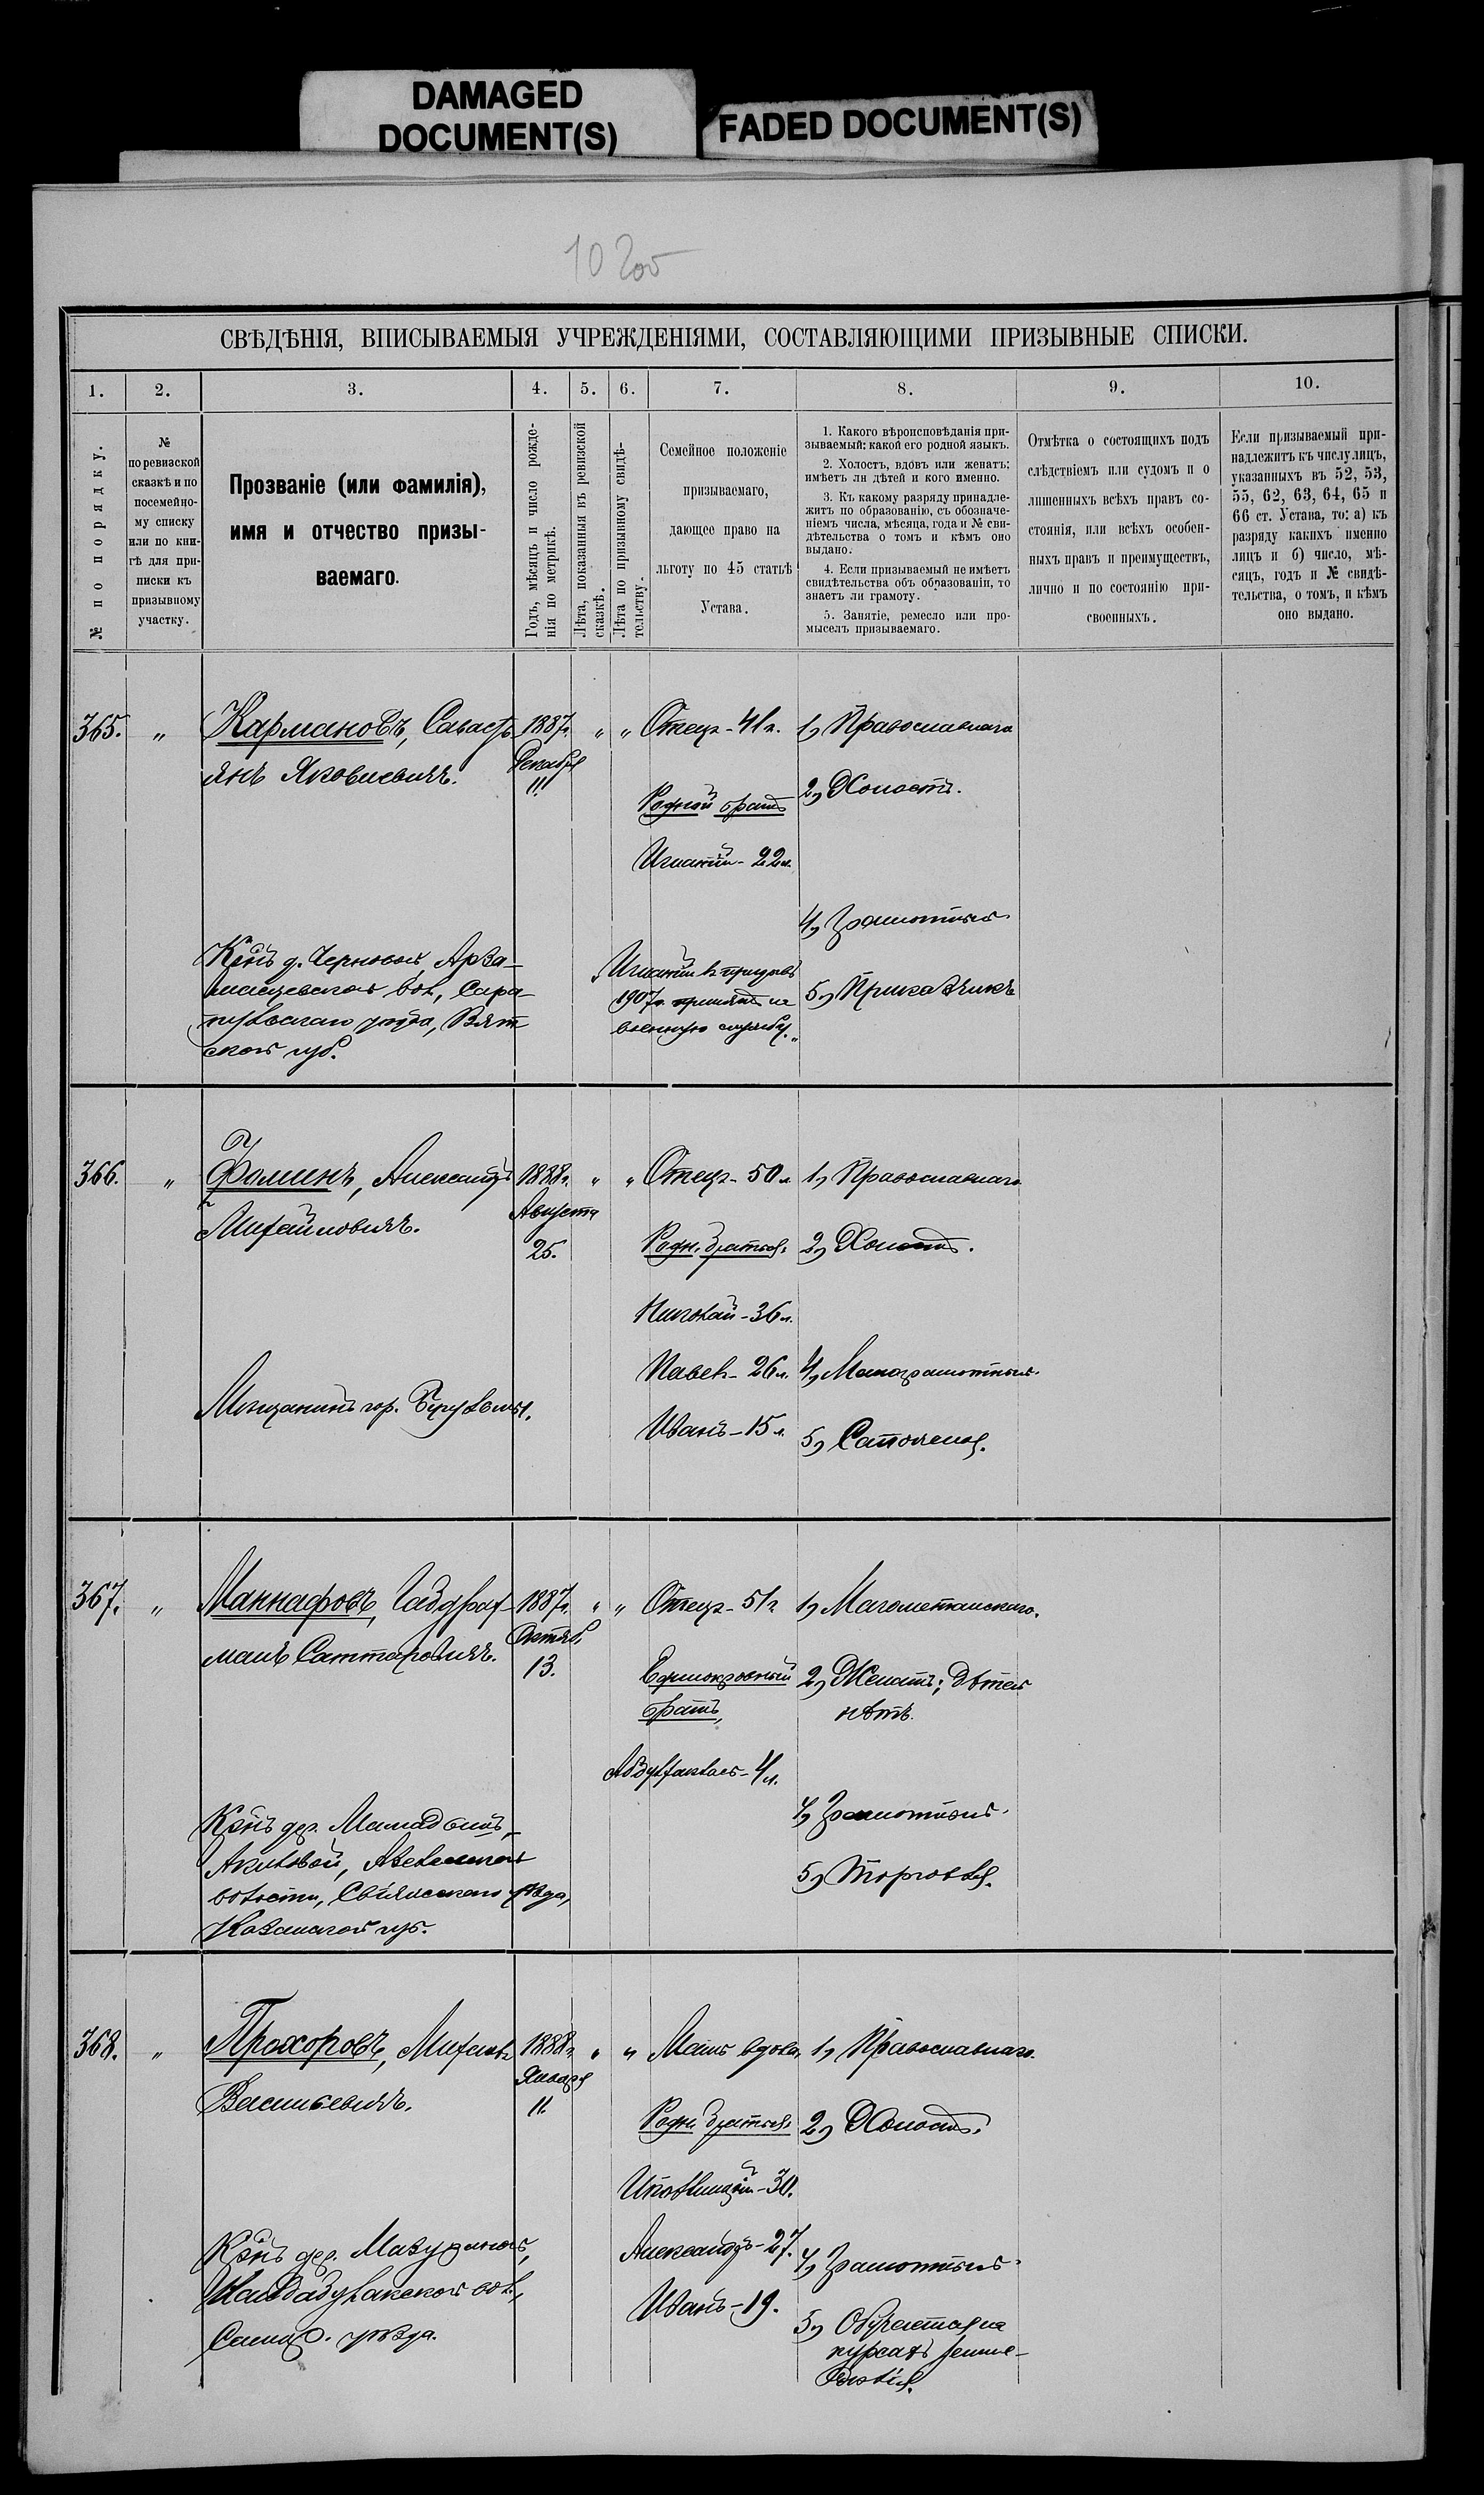 DAMAGED
DOCUMENT(S)
FADED DOCUMENT(S)
СВѢДѢНІЯ, ВПИСЫВАЕМЫЯ УЧРЕЖДЕНІЯМИ, СОСТАВЛЯЮЩИМИ ПРИЗЫВНЫЕ СПИСКИ.
1. 2. 3. 4. 5. 6. 7. 8. 9. 10.
№ по порядку.
№
по ревизской
сказкѣ и по
посемейно-
му списку
или по кни-
гѣ для при-
писки къ
призывному
участку.
Прозваніе (или фамилія),
имя и отчество призы-
ваемаго.
Годъ, мѣсяцъ и число рожде-
нія по метрикѣ.
Лѣта, показанныя въ ревизской
сказкѣ.
Лѣта по призывному свидѣ-
тельству.
Семейное положеніе
призываемаго,
дающее право на
льготу по 45 статьѣ
Устава.
1. Какого вѣроисповѣданія при-
зываемый: какой его родной языкъ.
2. Холостъ, вдовъ или женатъ;
имѣетъ ли дѣтей и кого именно.
3. Къ какому разряду принадле-
житъ по образованію, съ обозначе-
ніемъ числа, мѣсяца, года и № сви-
дѣтельства о томъ и кѣмъ оно
выдано.
4. Если призываемый не имѣетъ
свидѣтельства объ образованіи, то
знаетъ ли грамоту.
5. Занятіе, ремесло или про-
мыселъ призываемаго.
Отмѣтка о состоящихъ подъ
слѣдствіемъ или судомъ и о
лишенныхъ всѣхъ правъ со-
стоянія, или всѣхъ особен-
ныхъ правъ и преимуществъ,
лично и по состоянію при-
своенныхъ.
Если призываемый при-
надлежитъ къ числу лицъ,
указанныхъ въ 52, 53,
55, 62, 63, 64, 65 и
66 ст. Устава, то: а) къ
разряду какихъ именно
лицъ и б) число, мѣ-
сяцъ, годъ и № свидѣ-
тельства, о томъ, и кѣмъ
оно выдано.
365. „ Кармановъ, Саваст
янъ Яковлевичъ.
Кр-нъ д. Черновой, Арза-
масцевской вол., Сара-
пульскаго уѣзда, Вят
ской губ.
1887г.
Декабря
11.
„ „
Отецъ - 41 г.
Родной братъ
Игнатій - 22 л.
Игнатій въ призывъ
1907 г. принятъ на
военную службу.„
1, Православнаго
2, Холостъ.
4, Грамотный
5, Приказчикъ
366. „ Фоминъ, Александръ
Михайловичъ.
Мѣщанинъ гор.
1888г.
Августа
25.
„ „
Отецъ - 50 л.
Родн. братья.
Николай - 36 л.
Павелъ - 26 л.
Иванъ - 15 л.
1, Православнаго
2, Холостъ.
4, Малограмотный.
5,
367. „ Маннафовъ, Габдрах-
манъ Саттаровичъ.
Кр-нъ дер.
Акиловой,
волости, Свіяжскаго уѣзда,
Казанской губ.
1887г.
Октяб.
13.
„ „
Отецъ - 51 г.
Единокровный
братъ,
- 4 л.
1, Магометанскаго.
2, Женатъ; дѣтей
нѣтъ.
4, Грамотный.
5, Торговля.
368. „ Прохоровъ, Михаилъ
Васильевичъ.
Кр-нъ дер. Мазуриной,
вол.,
уѣзда.
1888г.
Января
11.
„ „
Мать вдова,
Родн. братья.
Ипполитій - 30.
Александръ - 27.
Иванъ - 19.
1, Православнаго.
2, Холостъ.
4, Грамотный.
5, Обучается на
курсахъ